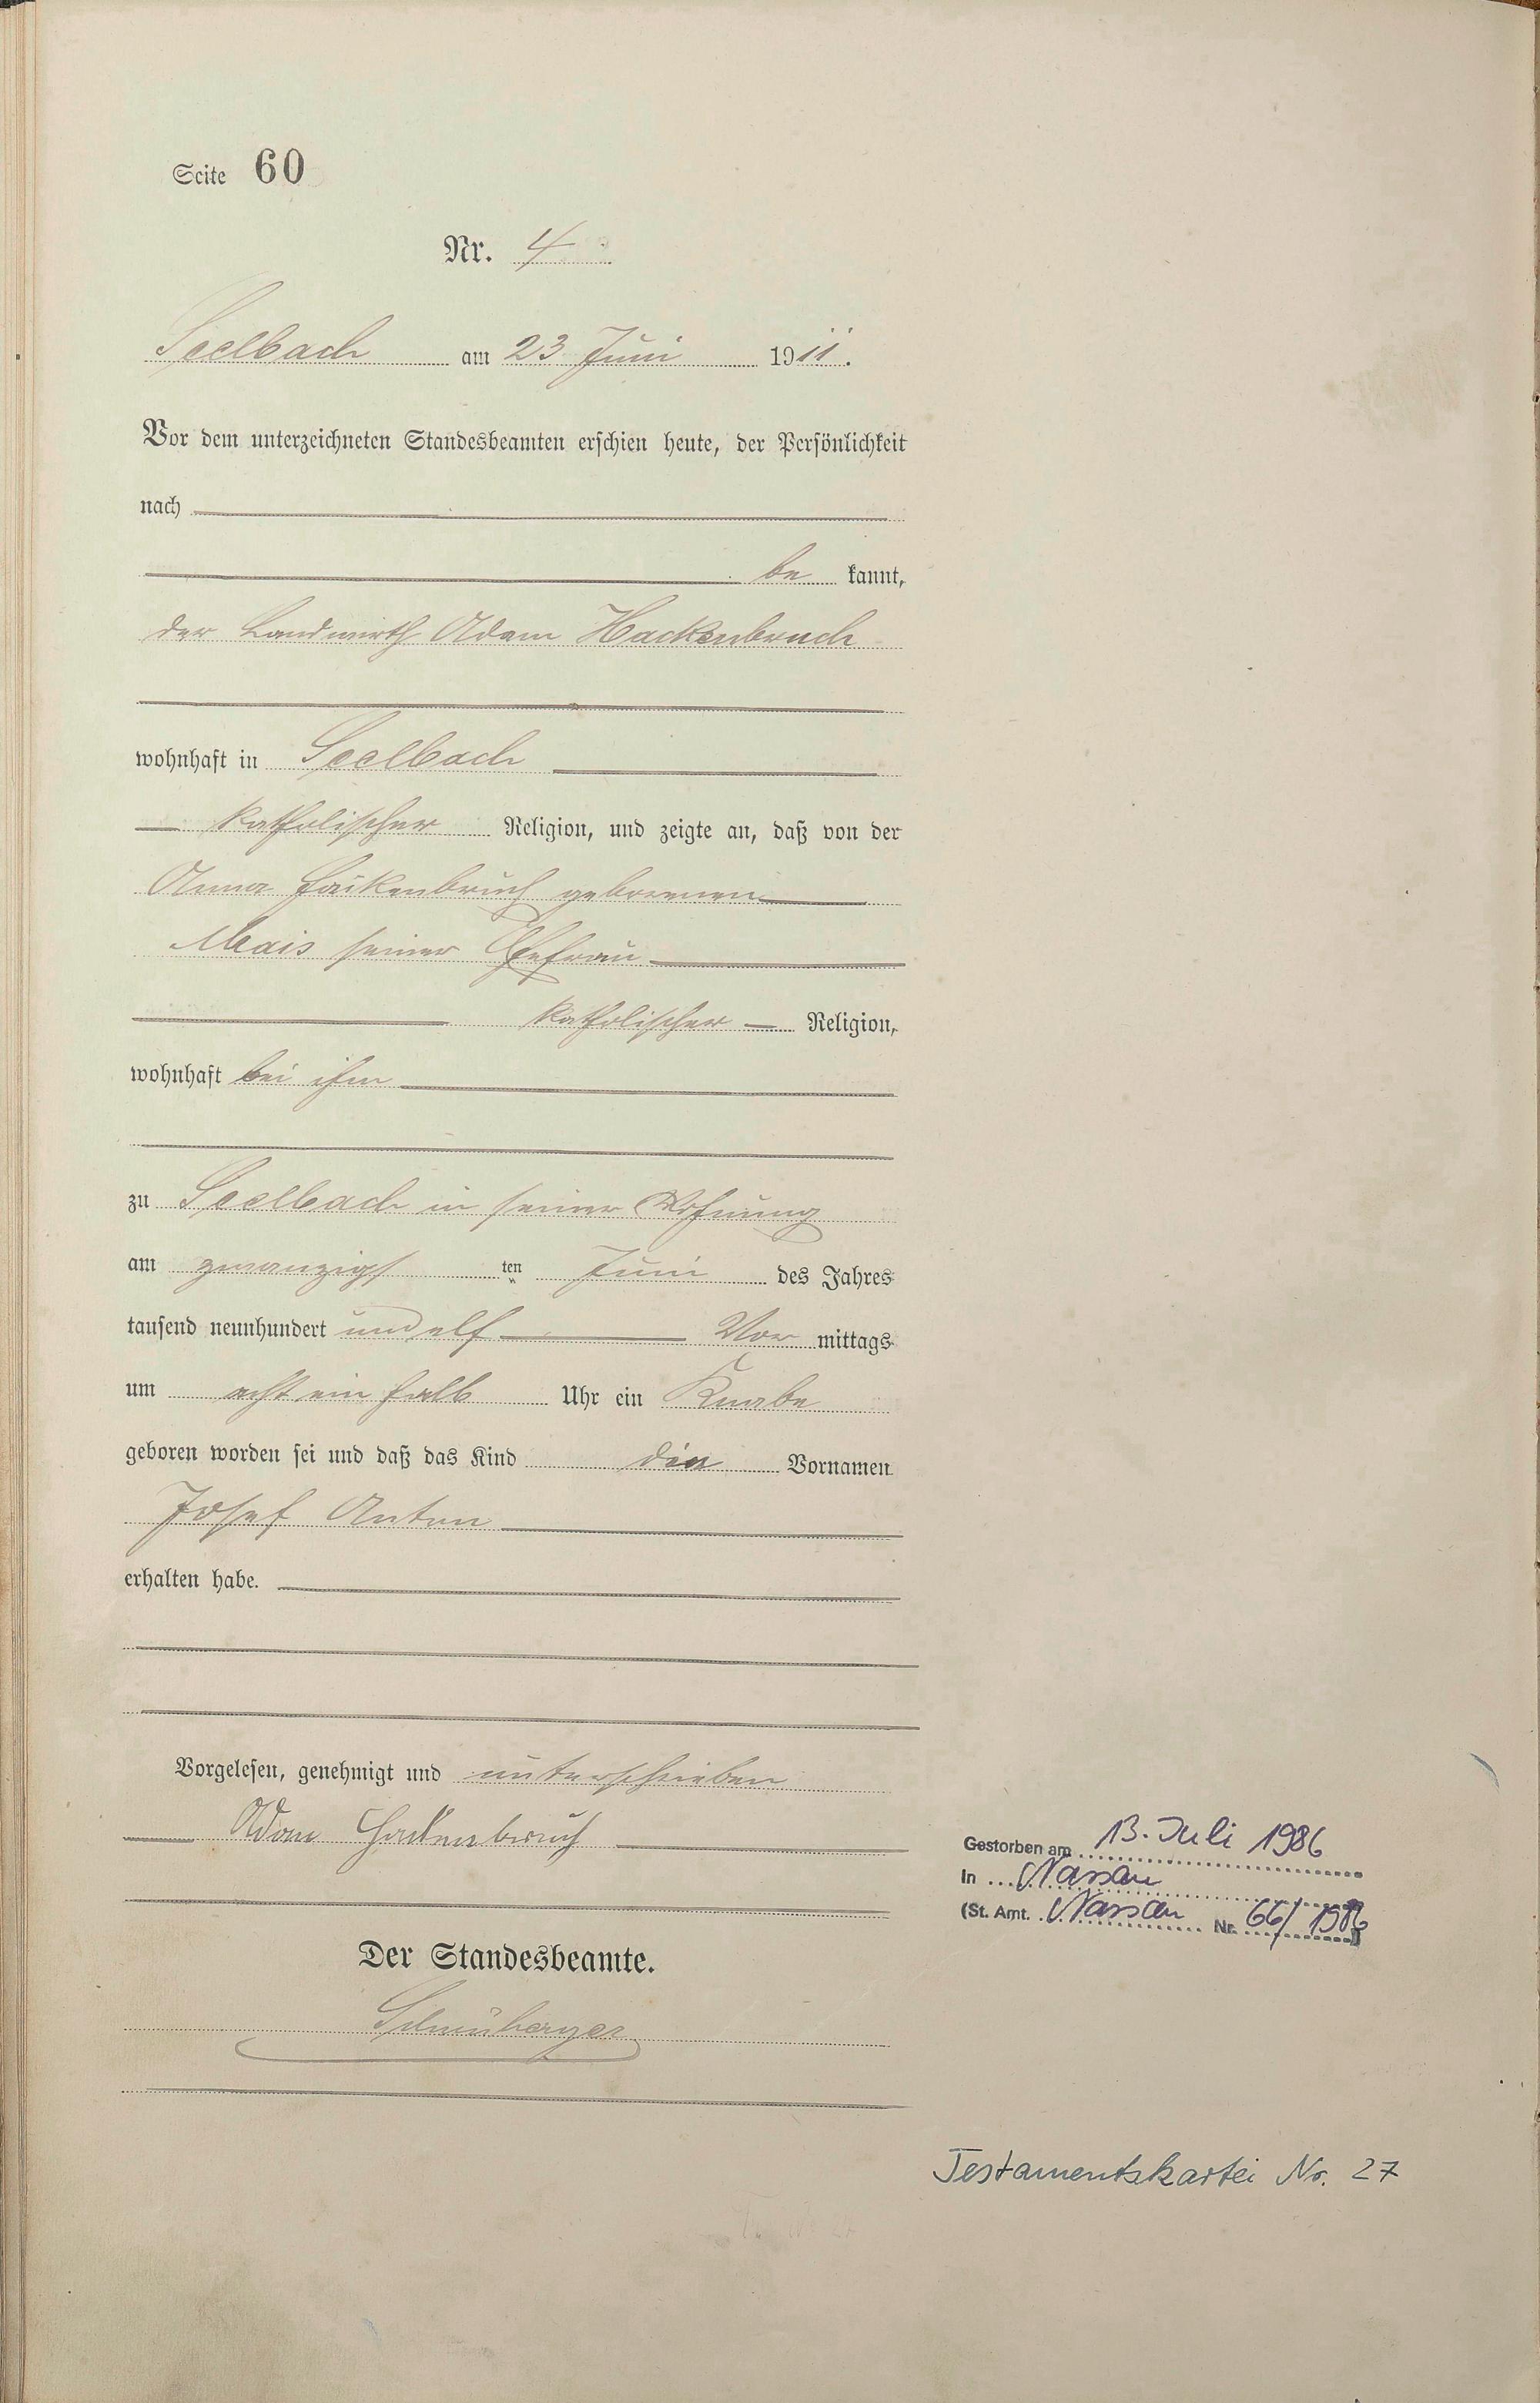 Seite 60
Nr. 4
Seelbach am 23 Juni 1911.
Vor dem unterzeichneten Standesbeamten erschien heute, der Persönlichkeit
nach
be kannt,
der Landwirth Adam Hackenbruch
wohnhaft in Seelbach
katholischer Religion, und zeigte an, daß von der
Anna Hackenbruch geborenen
Mais seiner Ehefrau
katholischer Religion,
wohnhaft bei ihm
zu Seelbach in seiner Wohnung
am zwanzigs ten Juni des Jahres
tausend neunhundert und elf Vor mittags
um acht ein halb Uhr ein Knabe
geboren worden sei und daß das Kind die Vornamen
Josef Anton
erhalten habe.
Vorgelesen, genehmigt und unterschrieben
Adam Hackenbruch
Der Standesbeamte.
Gestorben am 13. Juli 1986
In Nassau
(St. Amt. Nassau Nr. 66/1986)
Testamentskartei Nr. 27